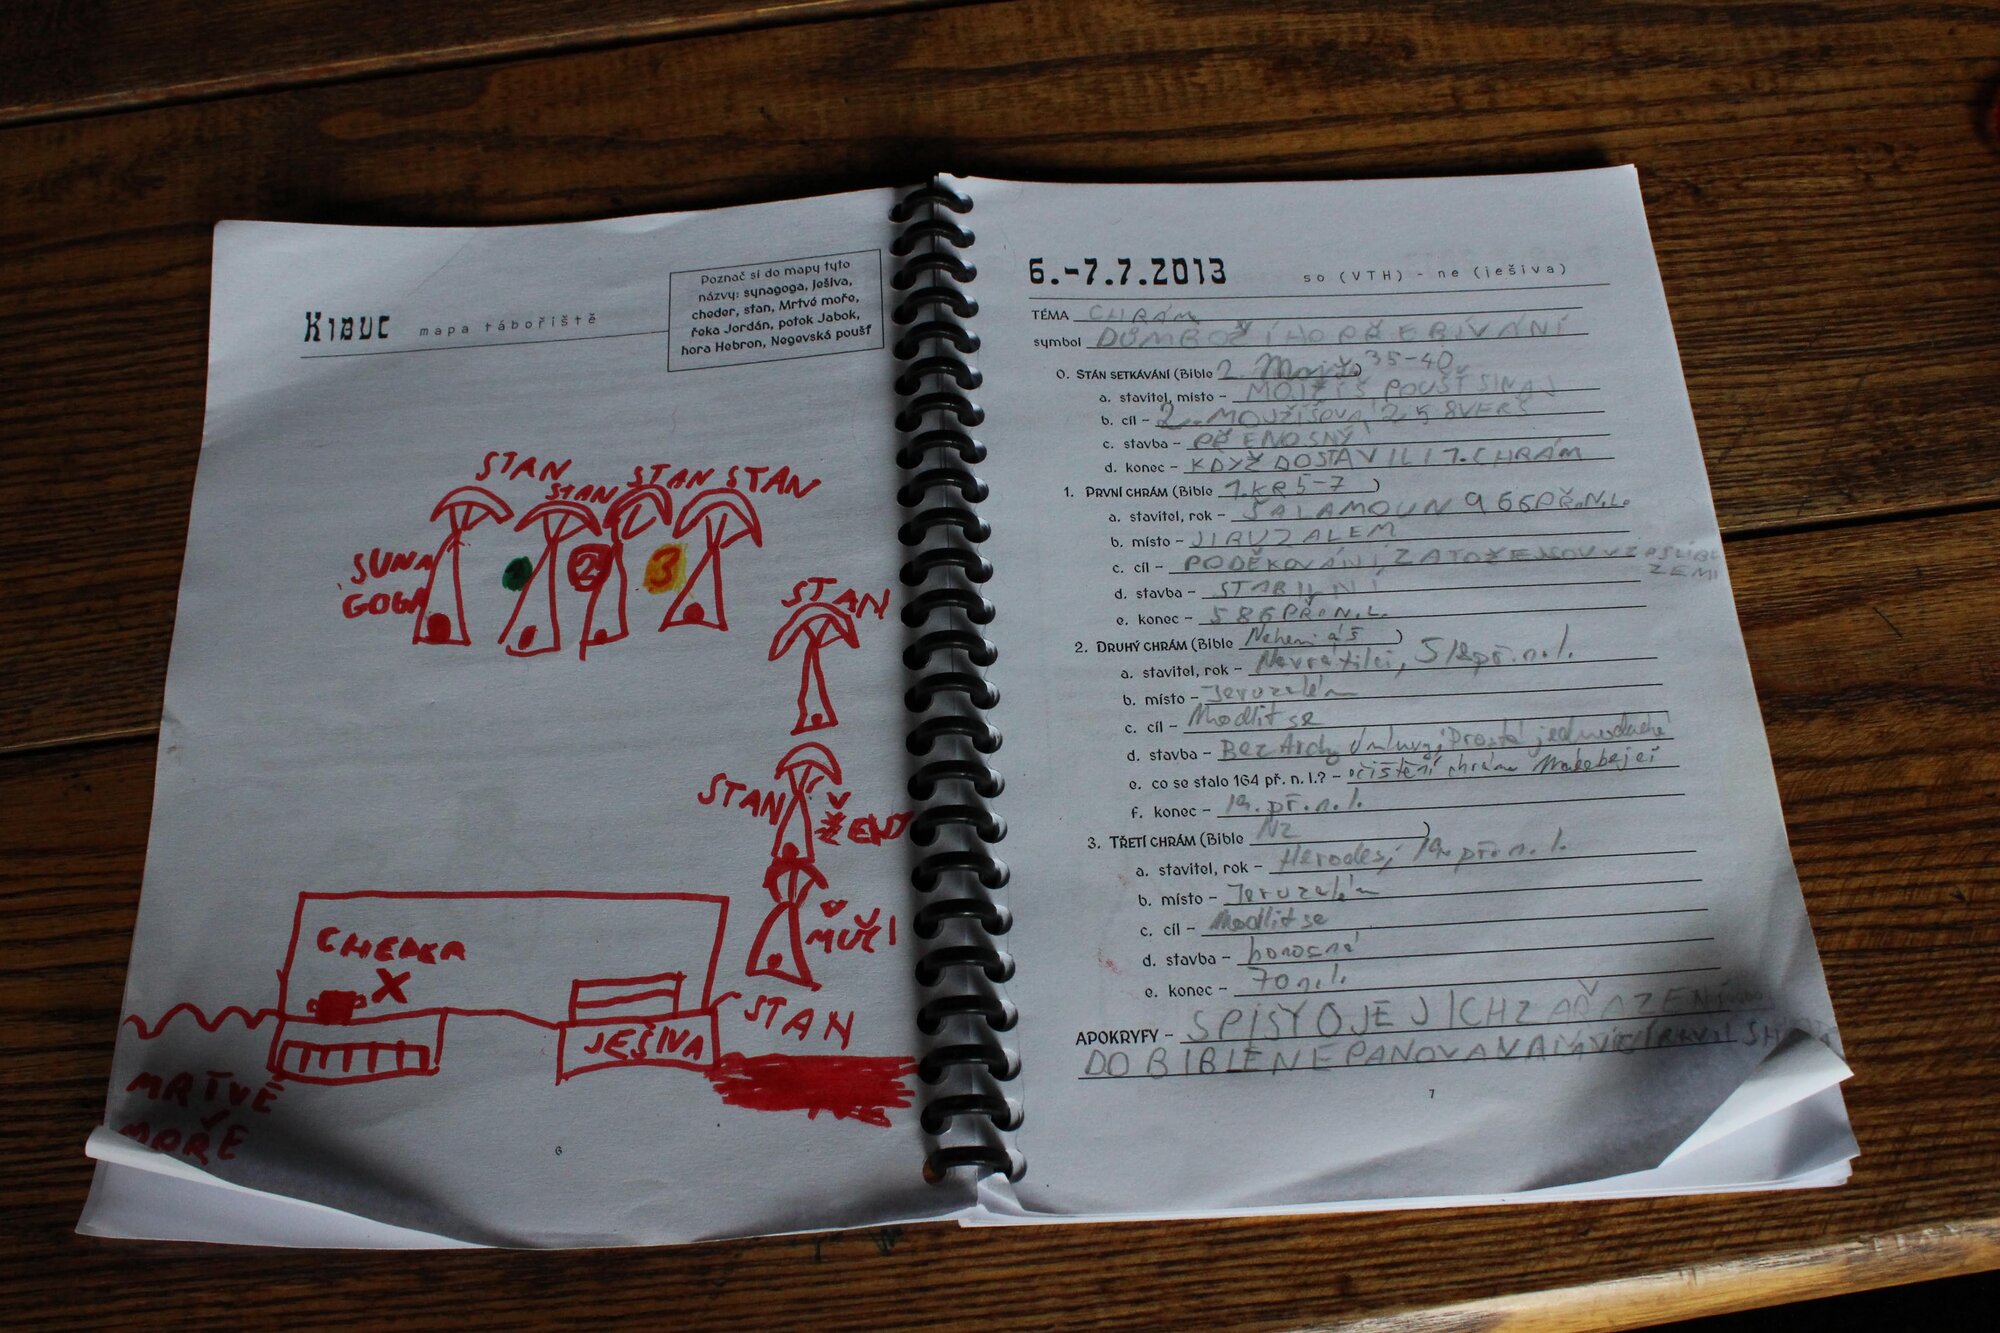 KIBUC mapa tábořiště
Poznač si do mapy tyto
názvy: synagoga, Ješiva,
cheder, stan, Mrtvé moře,
řeka Jordán, potok Jabok,
hora Hebron, Negevská poušť
STAN
STAN
STAN
STAN
1
2
3
SUNA
GOGA
STAN
STAN
ŽENY
MUČI
STAN
CHEDER
X
JEŠIVA
MRTVÉ
MOŘE
6
6.-7.7.2013 so (VTH) - ne (ješiva)
TÉMA CHRÁM
symbol DŮM BOŽÍHO PŘEBÍVÁNÍ
0. STAN SETKÁVÁNÍ (Bible 2. Mojž. 35-40)
a. stavitel, místo - MOJŽÍŠ POUŠŤ SINAJ
b. cíl - 2. MOUŽÍŠOVA 25 8VERŠ
c. stavba - PŘENOSNÝ
d. konec - KDYŽ DOSTAVILI 1. CHRÁM
1. PRVNÍ CHRÁM (Bible 1.KR 5-7)
a. stavitel, rok - ŠALAMOUN 966 PŘ.N.L.
b. místo - JIRUZALEM
c. cíl - PODĚKOVÁNÍ, ZATO ŽE
ZEMI
d. stavba - STABILNÍ
e. konec - 586 PŘ.N.L.
2. DRUHÝ CHRÁM (Bible Nehemiáš)
a. stavitel, rok - Navrátilci, 518 př.n.l.
b. místo - Jeruzalém
c. cíl - Modlit se
d. stavba - Bez Archy úmluvy, Prostá jednoduché
e. co se stalo 164 př. n. l.? - očištění chrámu Makabejci
f. konec - 19. př.n.l.
3. TŘETÍ CHRÁM (Bible NZ)
a. stavitel, rok - Herodes, 19. př.n.l.
b. místo - Jeruzalém
c. cíl - Modlit se
d. stavba - honosná
e. konec - 70 n.l.
APOKRYFY - SPISY O JEJICHŽ ZAŘAZENÍ
DO BIBLE NEPANOVALA
7